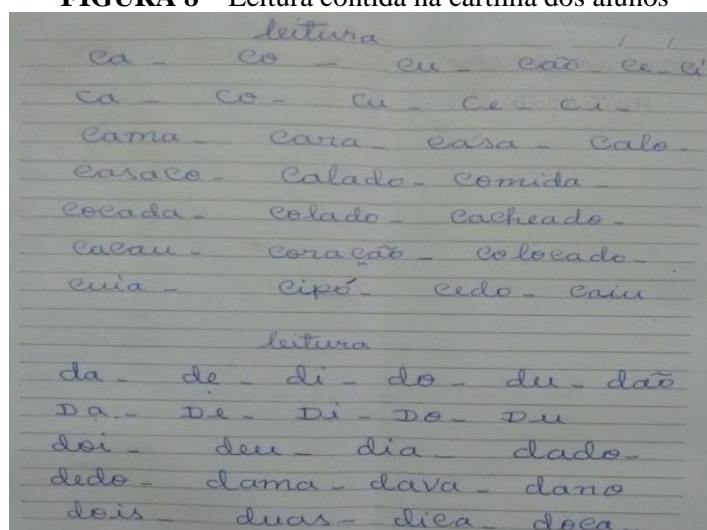 FIGURA 8 – Leitura contida na cartilha dos alunos
leitura / /
ca - co - cu - cão - ce - ci
ca - co - cu - ce - ci -
cama - cara - casa - calo -
casaco - calado - comida -
cocada - colado - cacheado -
cacau - coração - colocado -
cuia - cipó - cedo - caiu
leitura
da - de - di - do - du - dão
Da. - De - Di - Do - Du
doi - deu - dia - dado -
dedo - dama - dava - dano
dois - duas - dica - doca